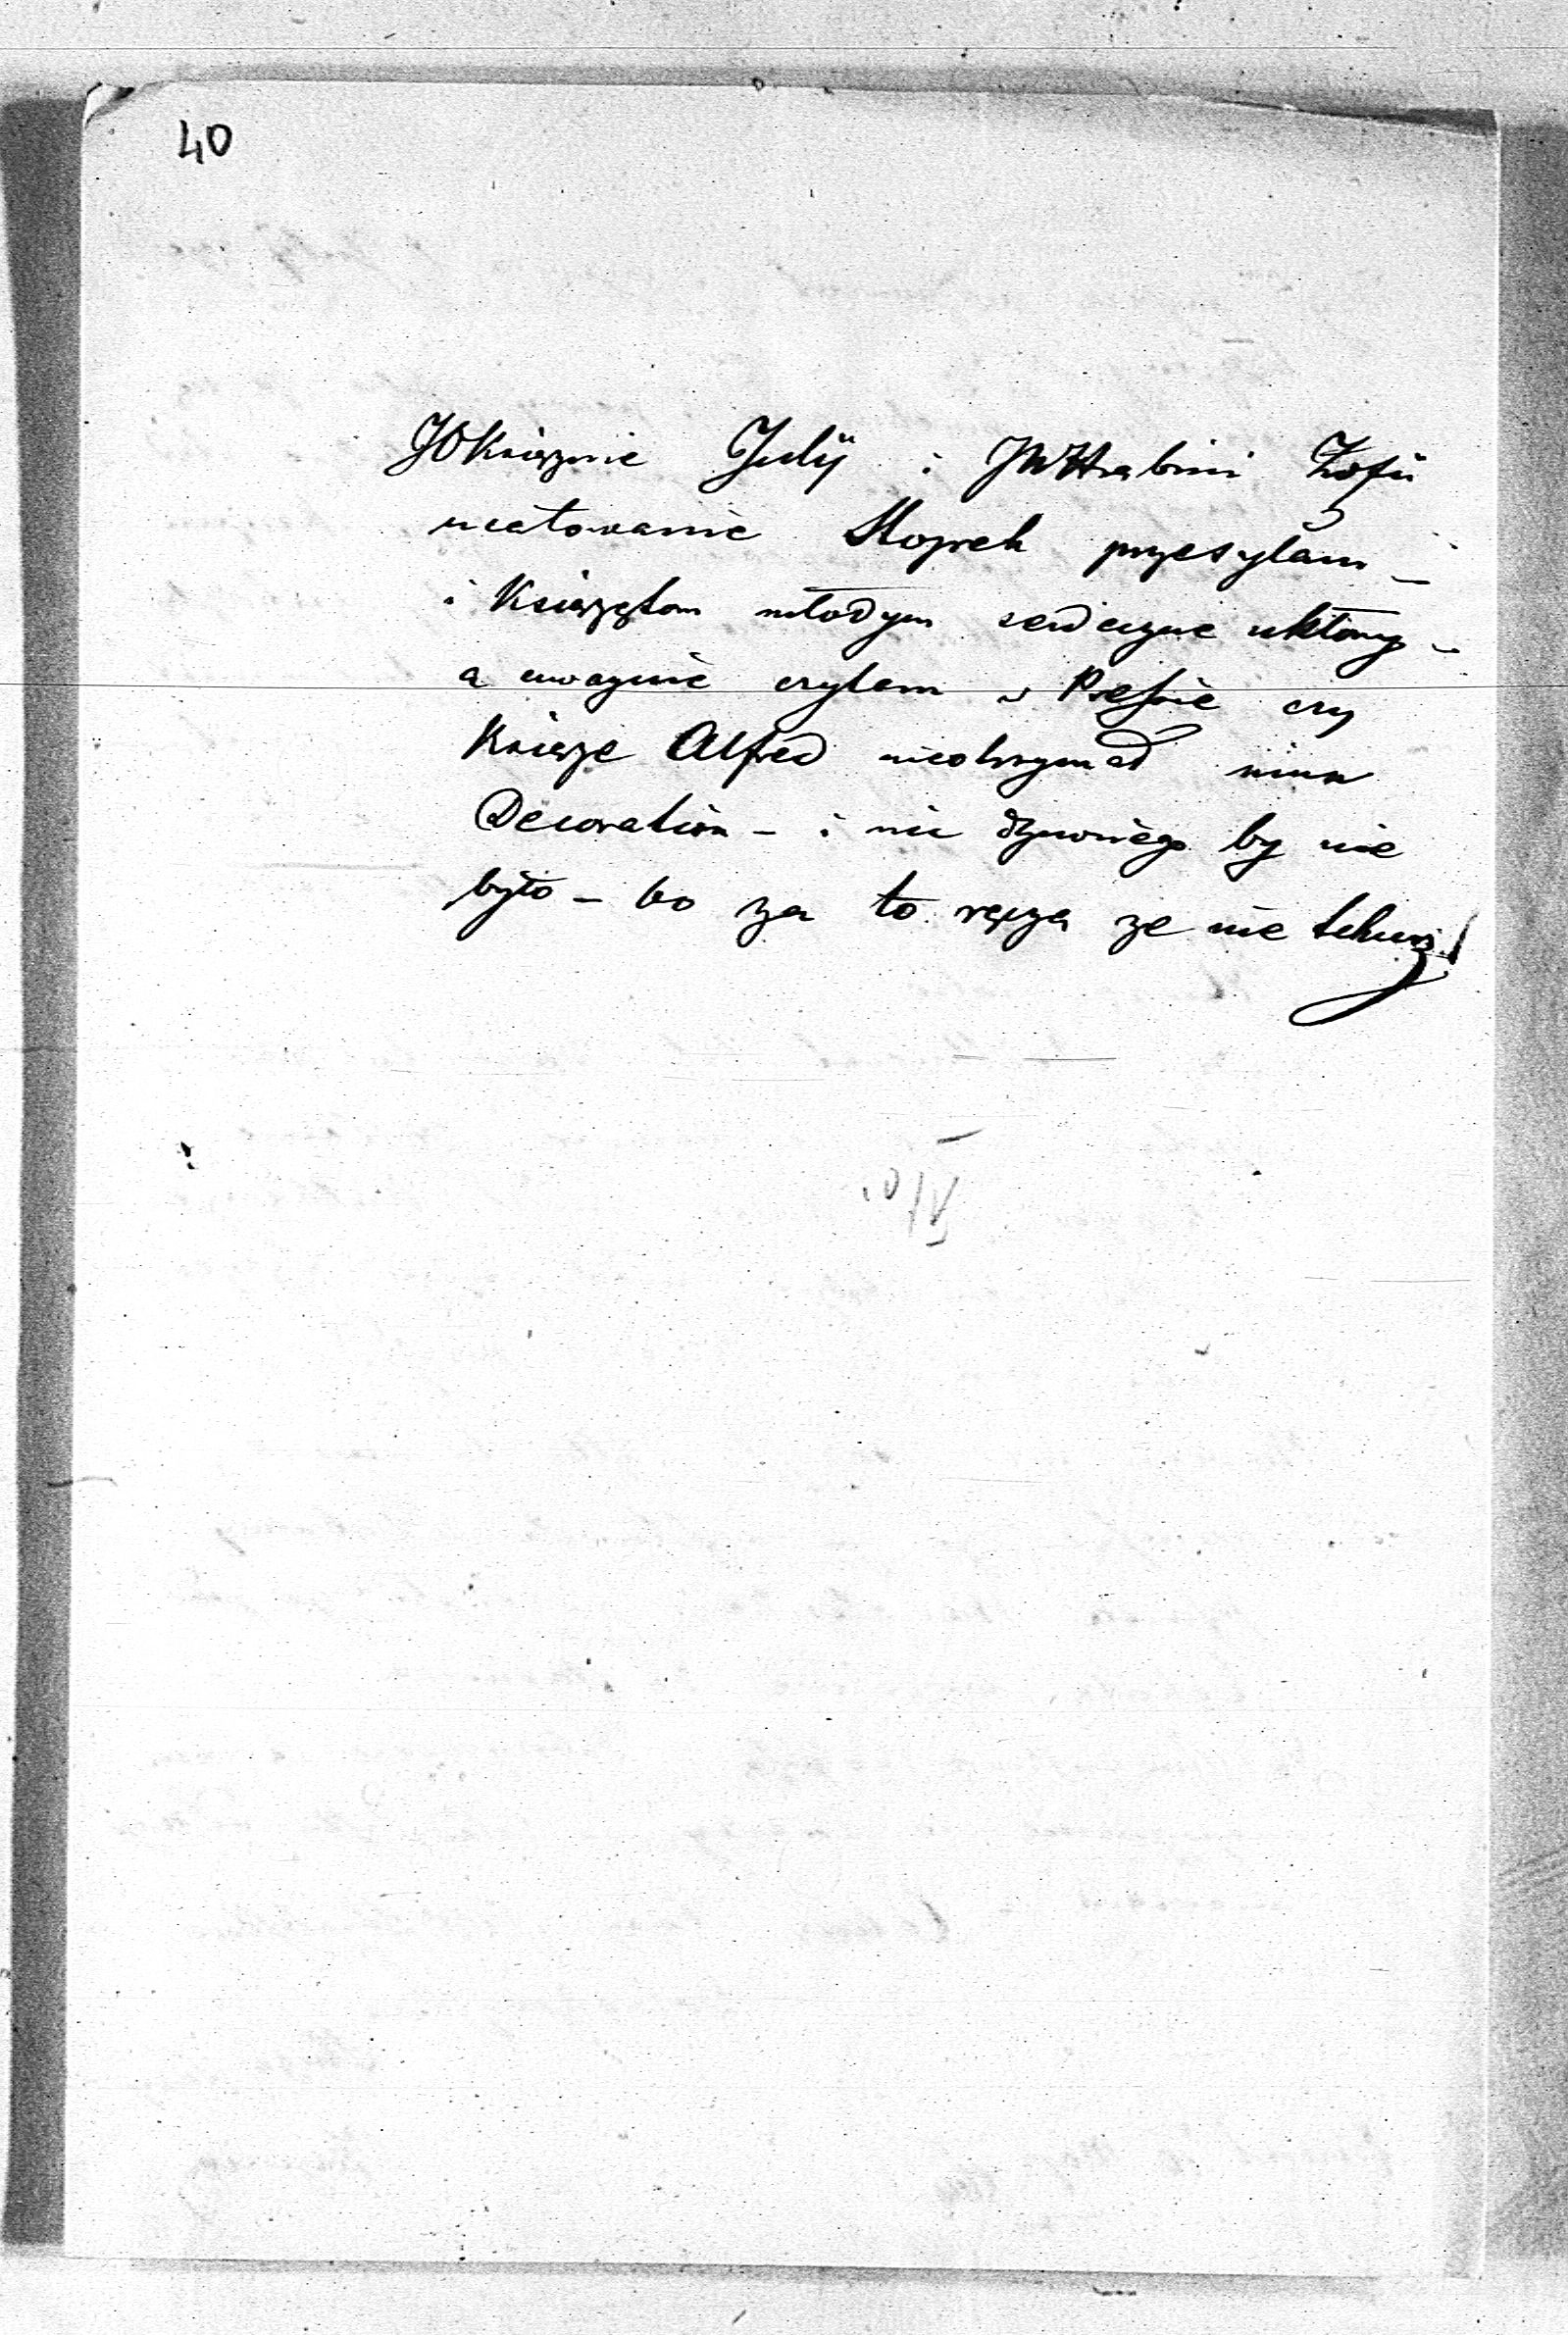 40
JOKsiężnie Julij i JWHrabini Zofii
ucałowanie Stopek przesyłam –
i Książętom młodym serdeczne ukłony –
a uwaznie czytam w Presśie czy
Książe Alfred nieotrzymał
Decoration – i nic dziwnego by nie
było – bo za to ręczę ze nie tchurz!